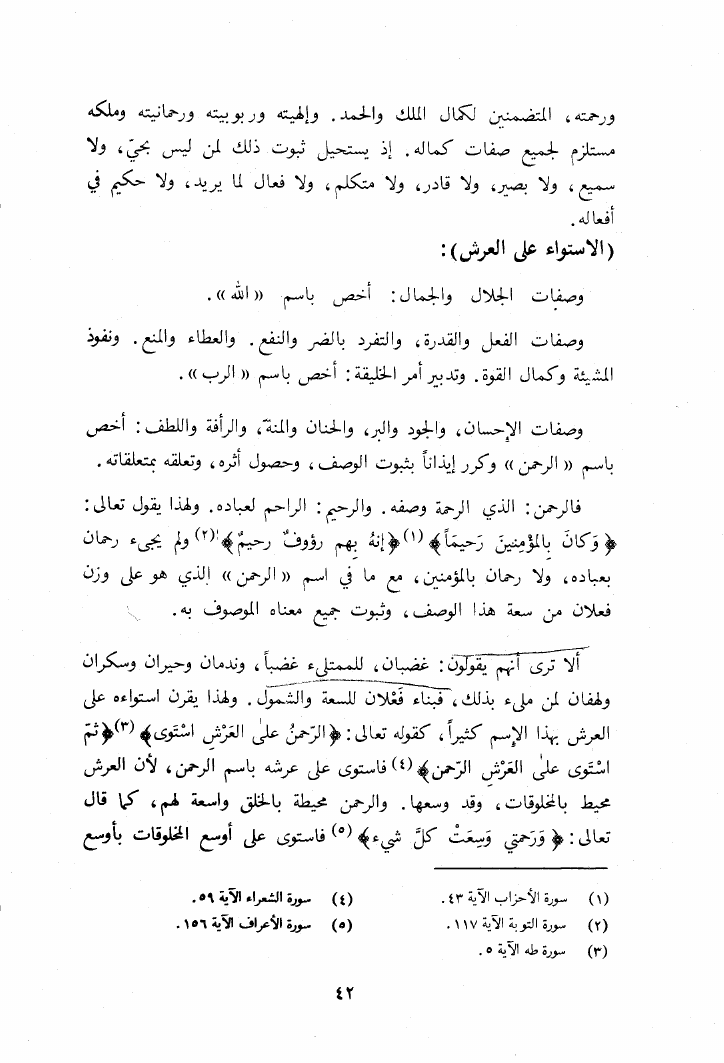 ورحمته، المتضمنين لكمال الملك والحمد. وإلهيته وربوبيته ورحمانيته وملكه
مستلزم لجميع صفات كماله. إذ يستحيل ثبوت ذلك لمن ليس بحيّ، ولا
سميع، ولا بصير، ولا قادر، ولا متكلم، ولا فعال لما يريد، ولا حكيم في
أفعاله.
(الاستواء على العرش):
وصفات الجلال والجمال: أخص باسم «الله».
وصفات الفعل والقدرة، والتفرد بالضر والنفع. والعطاء والمنع. ونفوذ
المشيئة وكمال القوة. وتدبير أمر الخليقة: أخص باسم «الرب».
وصفات الإحسان، والجود والبر، والحنان والمنة، والرأفة واللطف: أخص
باسم «الرحمن» وكرر إيذاناً بثبوت الوصف، وحصول أثره، وتعلقه بمتعلقاته.
فالرحمن: الذي الرحمة وصفه. والرحيم: الراحم لعباده. ولهذا يقول تعالى:
﴿وَكانَ بِالمُؤمِنينَ رَحيمَاً﴾(١) ﴿إنهُ بِهم رؤوفٌ رحيمٌ﴾(٢) ولم يجيء رحمان
بعباده، ولا رحمان بالمؤمنين، مع ما في اسم «الرحمن» الذي هو على وزن
فعلان من سعة هذا الوصف، وثبوت جميع معناه الموصوف به.
ألا ترى أنهم يقولون: غضبان، للممتلىء غضباً، وندمان وحيران وسكران
ولهفان لمن ملىء بذلك، فبناء فَعْلان للسعة والشمول. ولهذا يقرن استواءه على
العرش بهذا الإسم كثيراً، كقوله تعالى: ﴿الرّحمنُ على العَرْشِ اسْتَوى﴾(٣) ﴿ثمّ
اسْتَوى على العَرْشِ الرّحمن﴾(٤) فاستوى على عرشه باسم الرحمن، لأن العرش
محيط بالمخلوقات، وقد وسعها. والرحمن محيطة بالخلق واسعة لهم، كما قال
تعالى: ﴿وَرَحمتي وَسِعَتْ كلَّ شيء﴾(٥) فاستوى على أوسع المخلوقات بأوسع
(١) سورة الأحزاب الآية ٤٣.
(٢) سورة التوبة الآية ١١٧.
(٣) سورة طه الآية ٥.
(٤) سورة الشعراء الآية ٥٩.
(٥) سورة الأعراف الآية ١٥٦.
٤٢